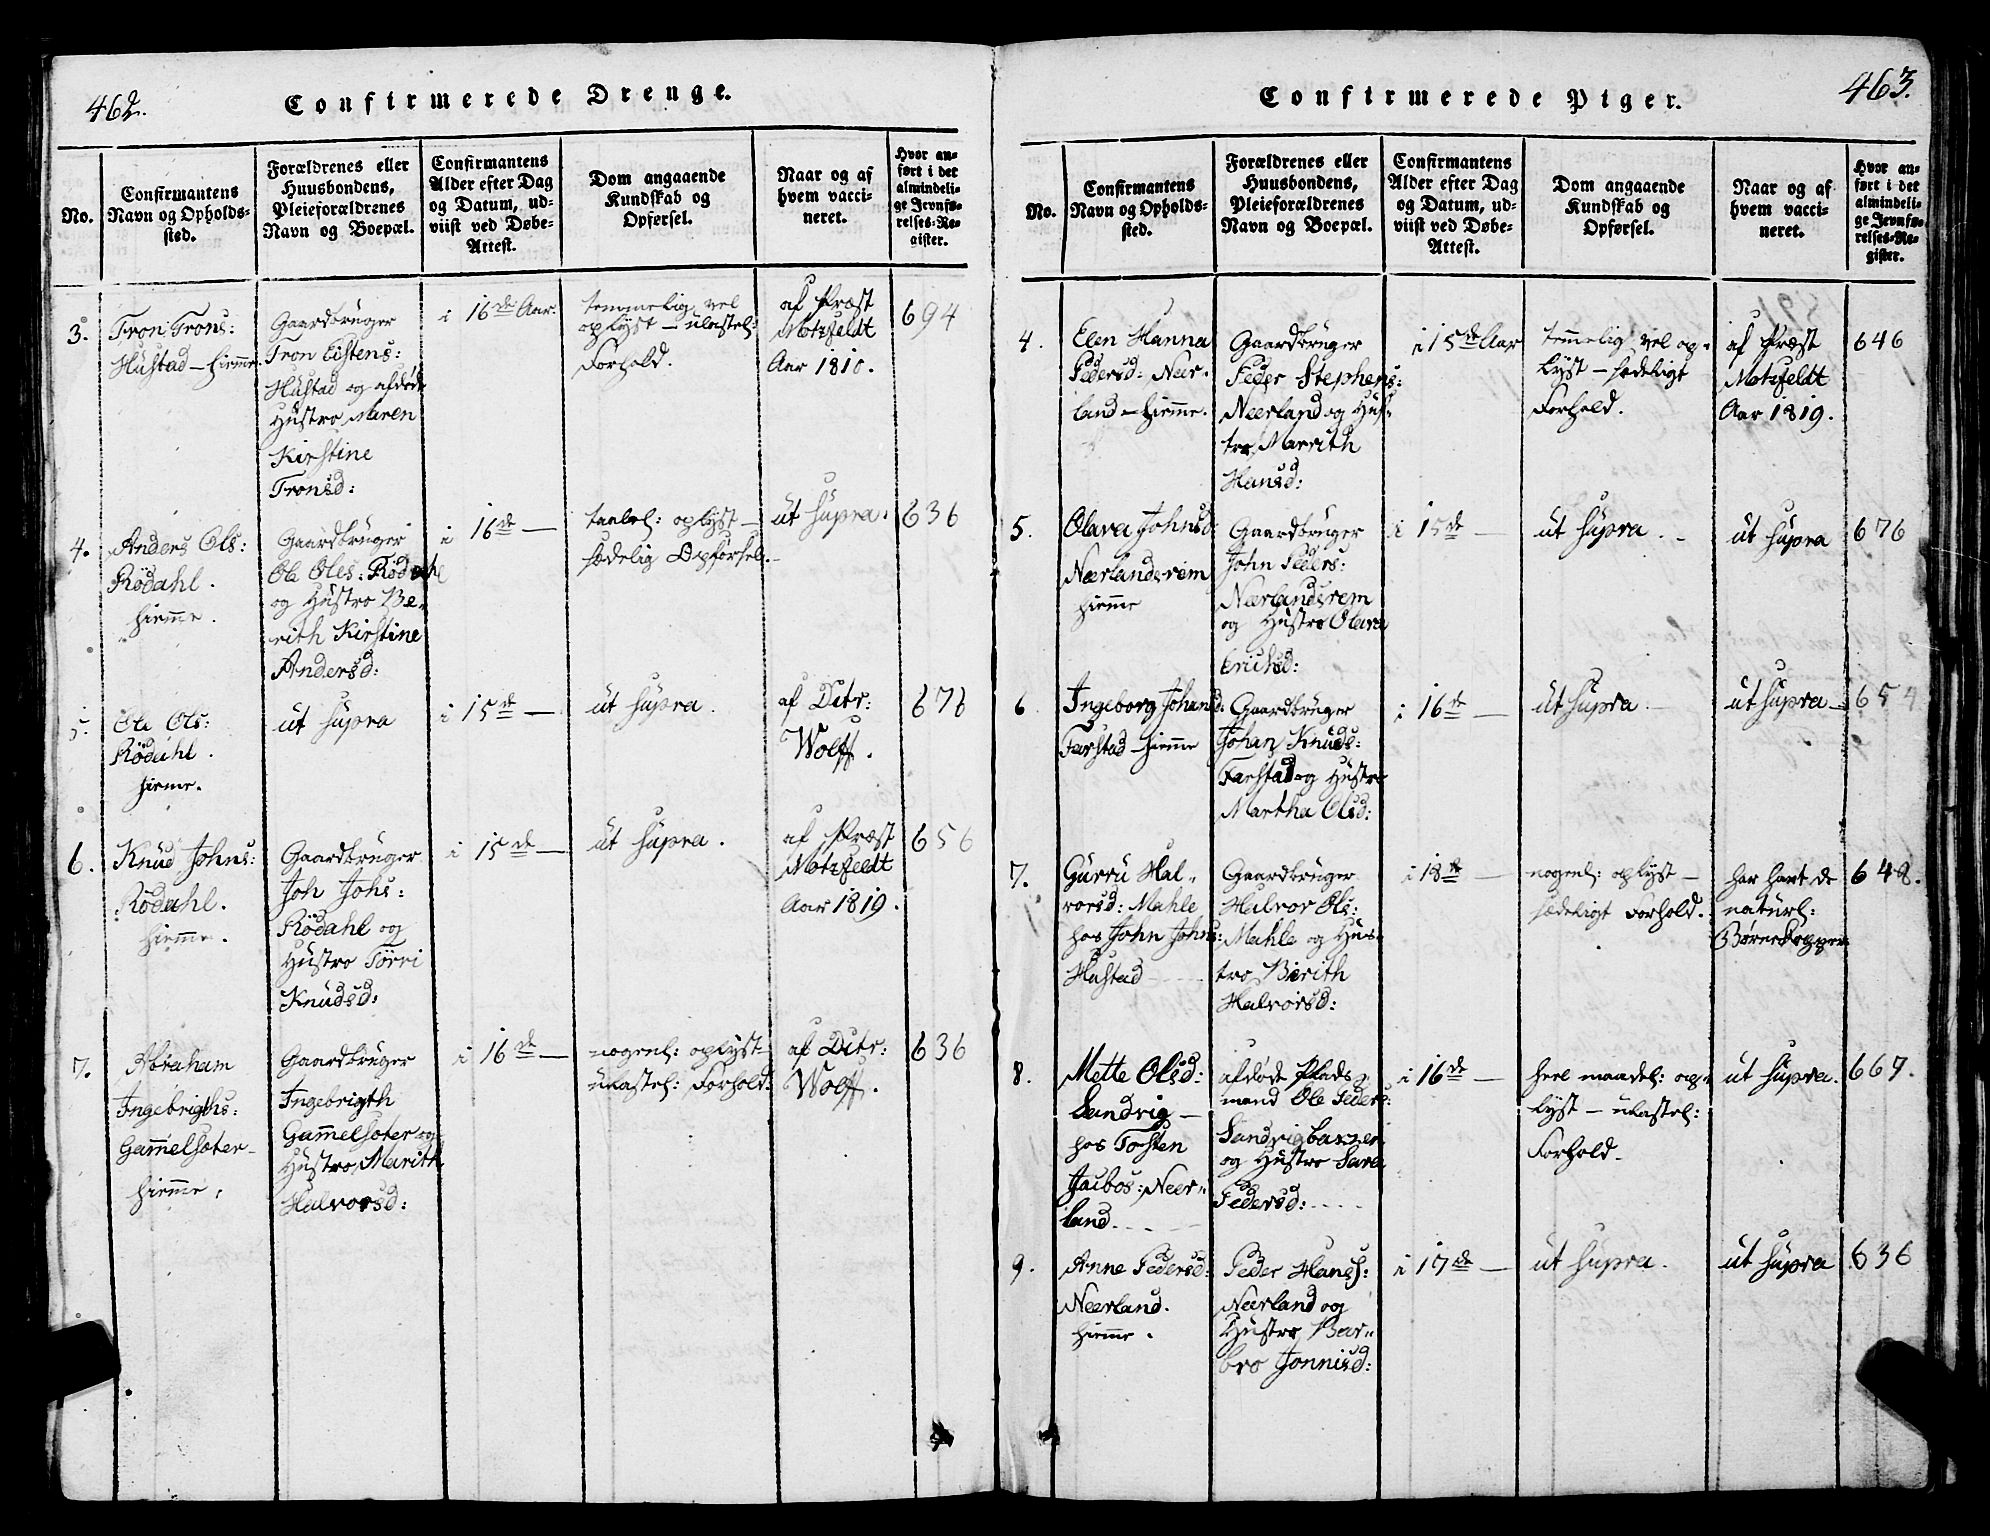 462.
Confirmerede Drenge.
No.
Confirmantens
Navn og Opholds-
sted.
Forældrenes eller
Huusbondens,
Pleieforældrenes
Navn og Boepæl.
Confirmantens
Alder efter Dag
og Datum, ud-
viist ved Døbe-
Attest.
Dom angaaende
Kundskab og
Opførsel.
Naar og af
hvem vacci-
neret.
Hvor an-
ført i det
almindeli-
ge Jevnfø-
relses-Re-
gister.
3.
Tron Trons:
Hustad — hiemme.
Gaardbruger
Tron Eistens:
Hustad og afdøde
Hustro Maren
Kirstine
Tronsd:
i 16de Aar.
temmelig vel
oplyst — ulastel:
Forhold.
af Præst
Motzfeldt
Aar 1810.
694
4.
Anders Ols:
Rödahl.
hiemme.
Gaardbruger
Ole Oles: Rödahl
og Hustro Be-
rith Kirstine
Andersd:
i 16de —
taalel: oplyst —
sædelig Opførsel.
ut supra.
636
5.
Ole Ols:
Rödahl.
hiemme.
ut supra
i 15de —
ut supra.
af Ditr:
Wolff.
676
6.
Knud Johns:
Rödahl.
hiemme.
Gaardbruger
Joh Johs:
Rödahl og
Hustro Törri
Knudsd:
i 15de —
ut supra.
af Præst
Motzfeldt
Aar 1819.
656
7.
Abraham
Ingebrigths:
Gammelsæter —
hiemme.
Gaardbruger
Ingebrigth
Gammelsæter og
Hustro Marith
Halvorsd:
i 16de —
nogenl: oplyst —
ulastel: Forhold.
af Ditr:
Wolff.
636
463.
Confirmerede Piger.
No.
Confirmantens
Navn og Opholds-
sted.
Forældrenes eller
Huusbondens,
Pleieforældrenes
Navn og Boepæl.
Confirmantens
Alder efter Dag
og Datum, ud-
viist ved Døbe-
Attest.
Dom angaaende
Kundskab og
Opførsel.
Naar og af
hvem vacci-
neret.
Hvor an-
ført i det
almindeli-
ge Jevnfø-
relses-Re-
gister.
4.
Elen Hanna
Pedersd: Neer-
land — hiemme.
Gaardbruger
Peder Stephens:
Neerland og Hus-
tro Marrith
Hansd:
i 15de Aar
temmelig vel op-
lyst — sædeligt
Forhold.
af Præst
Motzfeldt
Aar 1819.
646
5.
Olava Johnsd:
Neerlandsrem
hiemme
Gaardbruger
John Peders:
Neerlandsrem
og Hustro Olava
Erichsd:
i 15de —
ut supra.
ut supra
676
6
Ingeborg Johansd:
Farstad — hiemme
Gaardbruger
Johan Knuds:
Farstad og Hustro
Martha Olsd:
i 16de —
ut supra.
ut supra —
654
7.
Gurru Hal-
vorsd: Mahle
hos John Johns:
Hustad
Gaardbruger
Halvor Ols:
Mahle og Hus-
tro Berith
Halvorsd:
i 18de —
nogenl: oplyst —
sædeligt Forhold.
har havt de
naturl:
Børnekopper
648.
8.
Mette Olsd:
Sandvig —
hos Tosten
Jacbos: Neer-
land.
afdøde Plads-
mand Ole Peders:
Sandvig
og Hustro Sara
Pedersd:
i 16de —
heel maadel: op-
lyst — ulastel:
Forhold.
ut supra.
667.
9.
Anne Pedersd:
Neerland.
hiemme.
Peder Hanss:
Neerland og
Hustro Bar-
bro Jonnisd:
i 17de —
ut supra.
ut supra
636